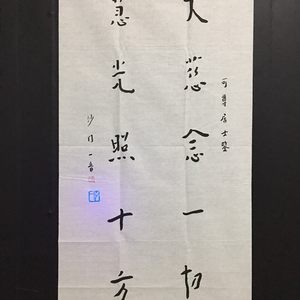 可尊居士鉴
大慈念一切
慧光照十方
沙门一音